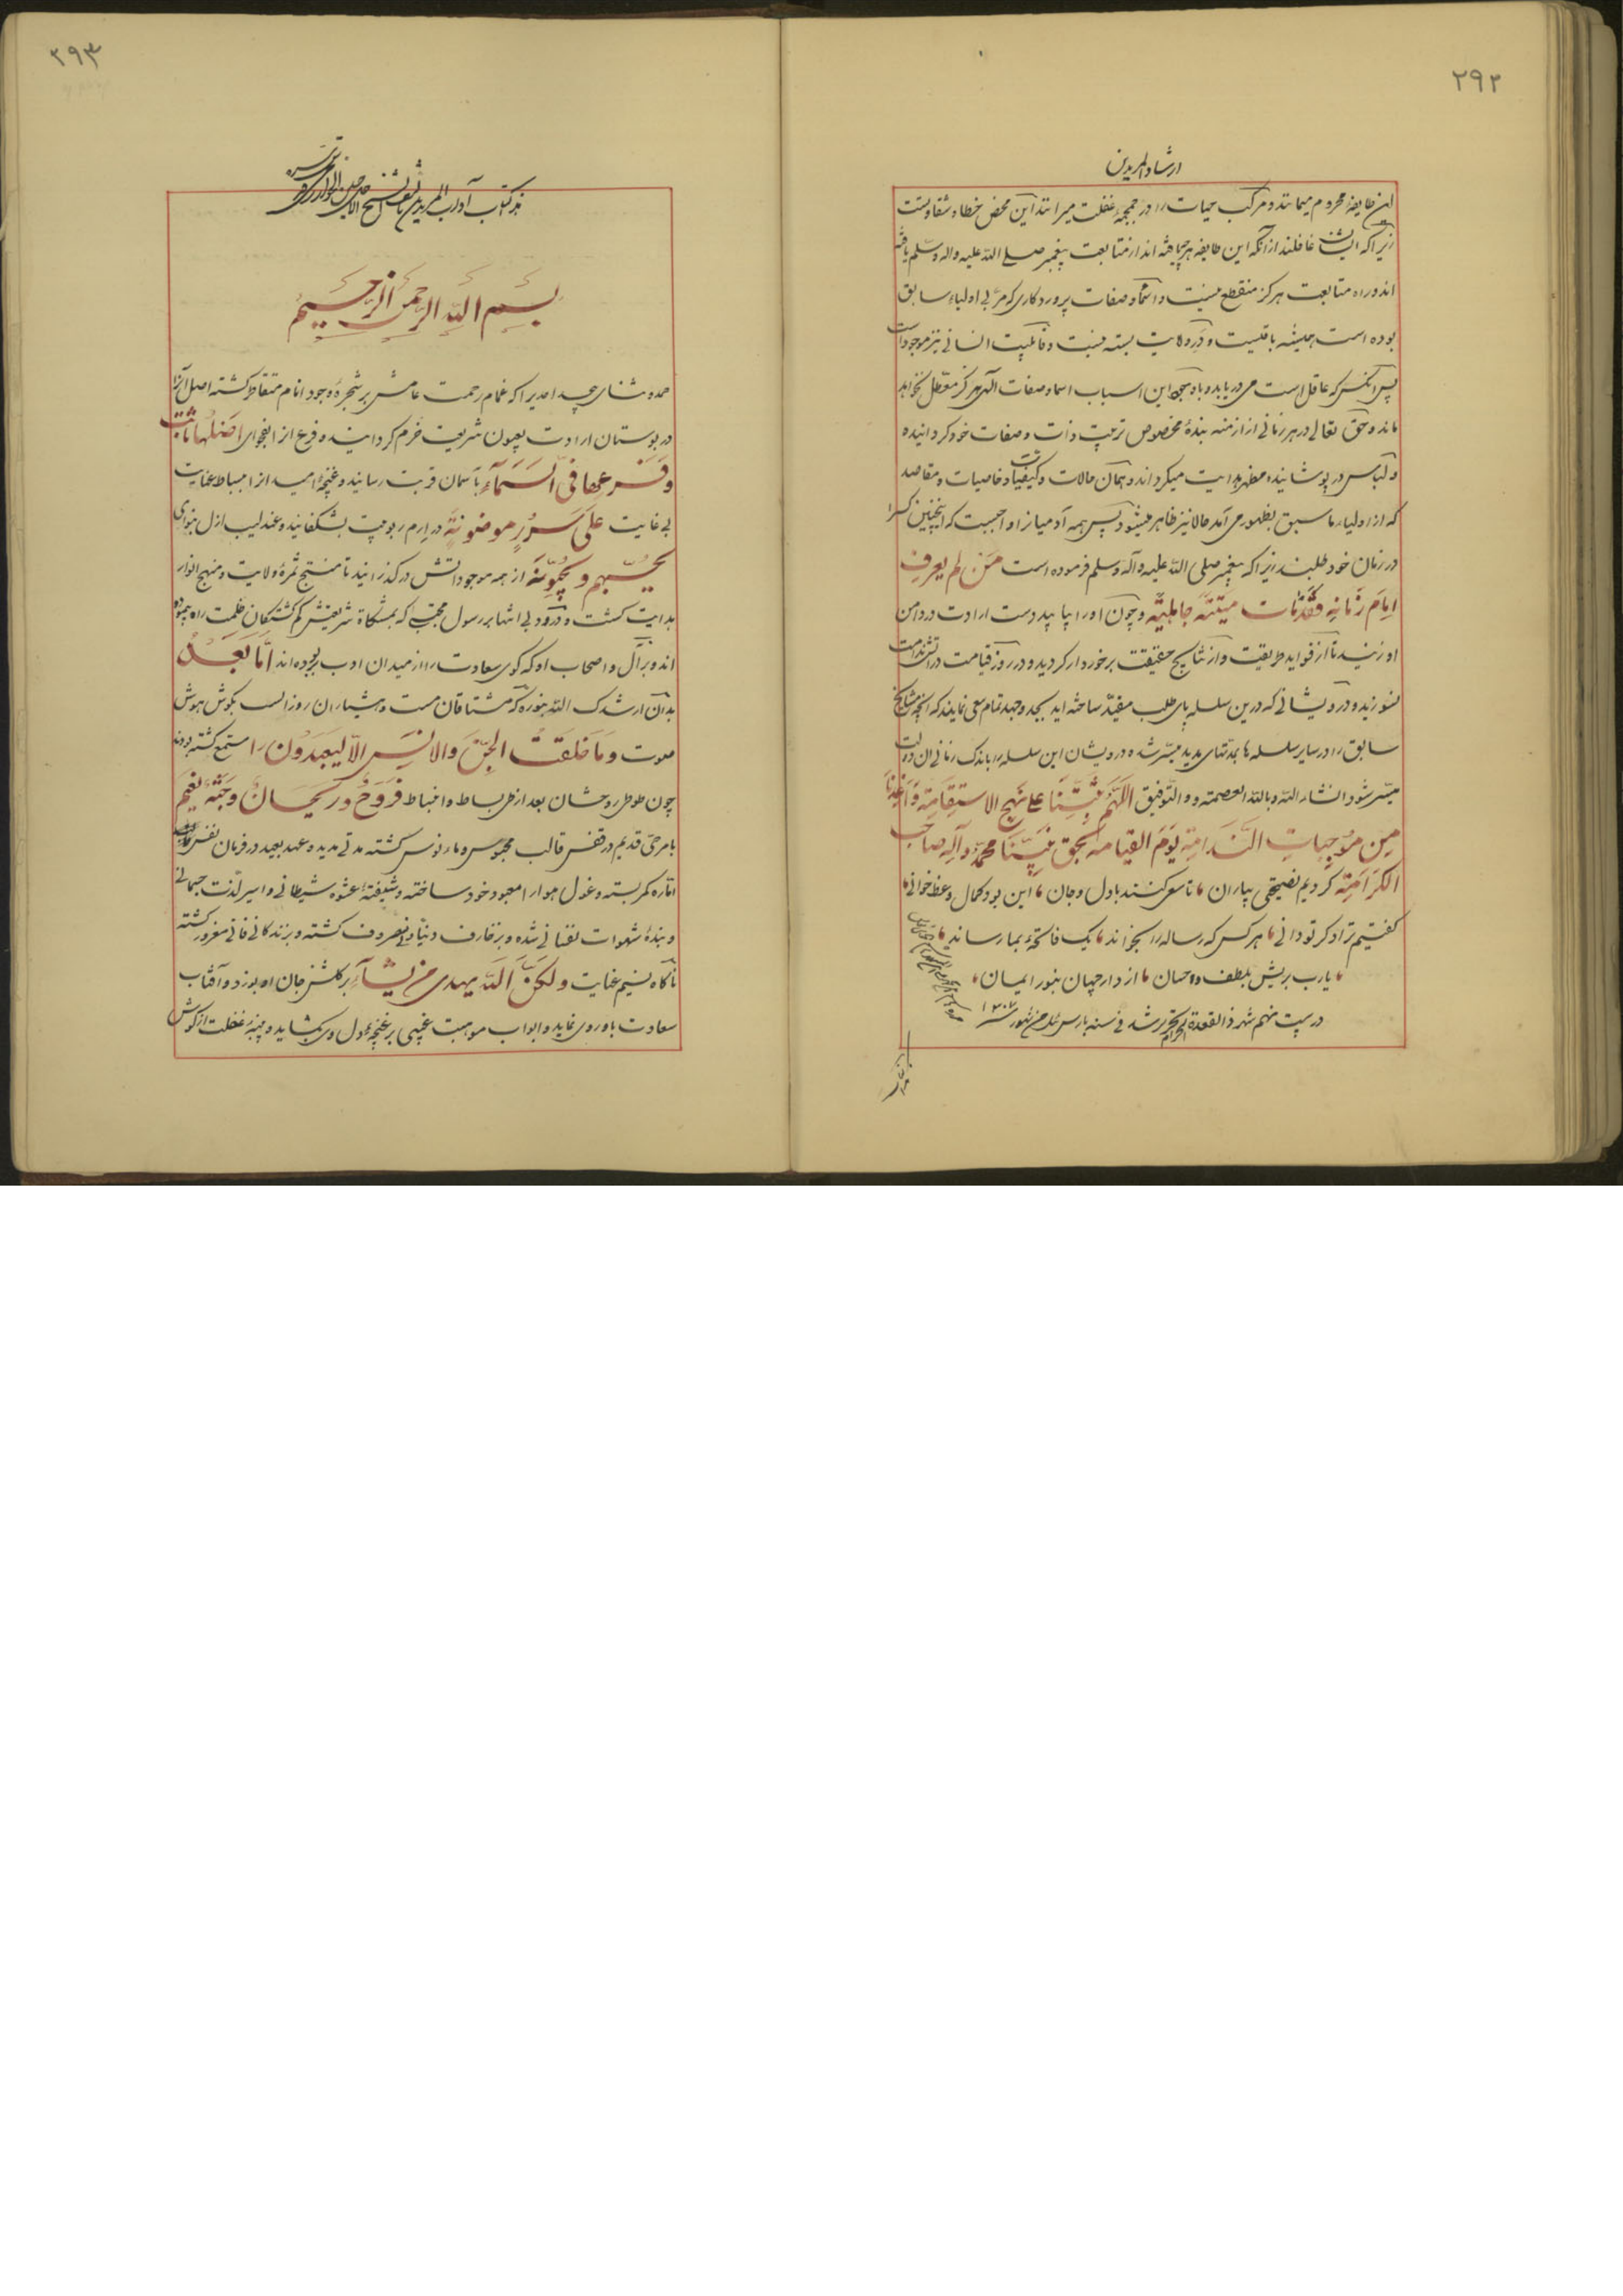 ۲۹۲
ارشاد المریدین
این طایفه محروم میمانند و مرکب حیات را در جمجمهٔ غفلت میرانند این محض خطا و شقاوتست
زیرا که ایشان غافلند از آنکه این طایفه هرچه یافته اند از متابعت پیغمبر صلی الله علیه واله وسلم یافته
اند و راه متابعت هرکز منقطع نیست و اسما و صفات پروردکاری که مربی اولیاء سابق
بوده است همیشه باقیست و در ولایت بسته نیست و قابلیت انسانی نیز موجود است
پس آنکس که عاقل است می دریابد که این اسباب اسما و صفات الهی هرکز معطل نخواهد
ماند و حق تعالی در هر زمانی از ازمنه بندهٔ مخصوص تربیت ذات و صفات خود کردانیده
و لباس در پوشانیده مظهر هدایت میکرداند و همان حالات و کیفیات و خاصیات و مقاصد
که از اولیاء ماسبق بظهور می آمد حالا نیز ظاهر میشود پس همه آدمیانرا واجبست که اینچنین کسرا
در زمان خود طلبند زیرا که پیغمبر صلی الله علیه وآله وسلم فرموده است من لم یعرف
امام زمانه فقد مات میتة جاهلیة و چون او را بیابید دست ارادت در دامن
او زنید تا از فواید طریقت و از نتایج حقیقت برخوردار کردید و در روز قیامت در آتش ندامت
نسوزید و درویشانی که درین سلسله پای طلب مقید ساخته اید بجد و جهد تمام سعی نمایند که آنچه مشایخ
سابق را در سایر سلسله ها بمدتهای مدید میسر شده درویشان این سلسله را باندک زمانی آن دولت
میسر شود انشاء الله وبالله العصمة والتوفیق اللهم ثبتنا علی نهج الاستقامة واعذنا
من موجبات الندامة یوم القیامه بحق نبینا محمد وآله صاحب
الکرامة کردیم نصیحتی بیاران تا سعی کنند بادل وجان این بود کمال وعظ خوانی
کفتیم ترا دکر تو دانی هر کس که رساله را بخواند یک فاتحهٔ بما رساند
یارب بریش بلطف و احسان از دار جهان بنور ایمان
در بیست نهم شهر ذالقعدة الحرام تحریر شد فی سنه پارس ئیل من شهور سنه ۱۳۰۷
۲۹۳
هذا کتاب آداب المریدین
بسم الله الرحمن الرحیم
حمد و ثنای بیحد احدیرا که غمام رحمت عامش بر شجرهٔ وجود انام متقاطر کشته اصل آنرا
در بوستان ارادت بعیون شریعت خرم کردانیده و فرع انرا بفحوای اصلها ثابت
وفرعها فی السماء بآسمان قربت رسانیده و غنچهٔ امید انرا انبساط عنایت
بی غایت علی سرر موضونة در ارم ربوبیت بشکفانیده و عندلیب ازل بنوای
یحبهم ویحبونه از همه موجوداتش در کذرانید تا منتج ثمرهٔ ولایت و منهج انوار
هدایت کشت و درود بی انتها بر رسول مجتبی که بمشکاة شریعتش کم کشتکان ظلمت راه نموده
اند و بر آل و اصحاب او که کوی سعادت را از میدان ادب ربوده اند اما بعد
بدان ارشدک الله بنوره که مشتاقان مست و هشیاران روز الست بکوش هوش
صوت وما خلقت الجن والانس الا لیعبدون را مستمع کشته بودند
چون طوطی روحشان بعد از طی بساط و انبساط فروح وریحان وجنة نعیم
بامر حی قدیم در قفس قالب محبوس و مانوس کشته مدتی مدید و عهد بعید در فرمان نفس
اماره کمر بسته و غول هوا را معبود خود ساخته و شیفتهٔ عشوه شیطانی و اسیر لذت جسمانی
و بندهٔ شهوات نفسانی شده و بزخارف دنیاوی مصروف کشته و بزندکانی فانی مغرور کشته
ناکاه نسیم عنایت ولکن الله یهدی من یشاء بر کلشن جان او بوزد و آفتاب
سعادت باو روی نماید و ابواب موهبت غیبی بر غنچهٔ دل وی بکشاید و پنبهٔ غفلت از کوش